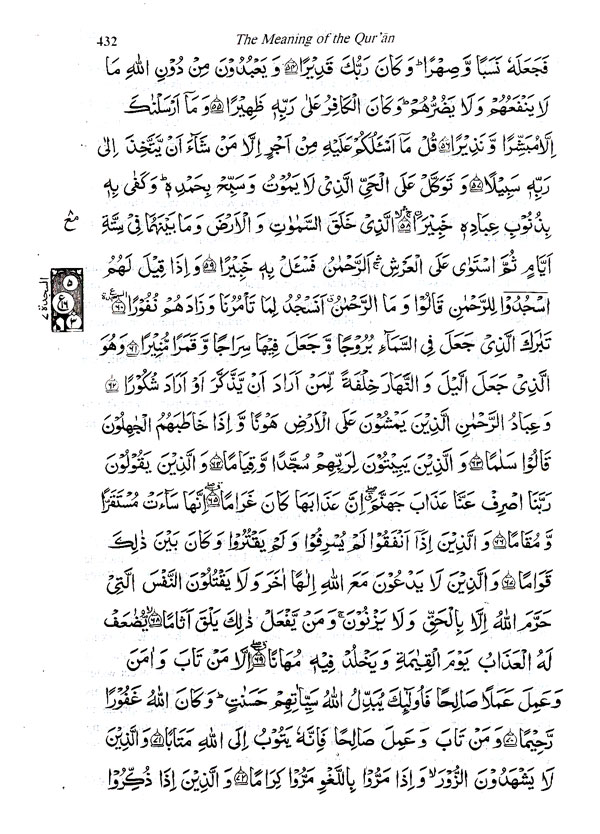 432 The Meaning of the Qur'ān
فَجَعَلَهٗ نَسَبًا وَّصِهْرًا ؕ وَكَانَ رَبُّكَ قَدِيْرًا ﴿۵۴﴾ وَيَعْبُدُوْنَ مِنْ دُوْنِ اللّٰهِ مَا
لَا يَنْفَعُهُمْ وَلَا يَضُرُّهُمْ ؕ وَكَانَ الْكَافِرُ عَلٰى رَبِّهٖ ظَهِيْرًا ﴿۵۵﴾ وَمَاۤ اَرْسَلْنٰكَ
اِلَّا مُبَشِّرًا وَّنَذِيْرًا ﴿۵۶﴾ قُلْ مَاۤ اَسْـَٔلُكُمْ عَلَيْهِ مِنْ اَجْرٍ اِلَّا مَنْ شَآءَ اَنْ يَّتَّخِذَ اِلٰى
رَبِّهٖ سَبِيْلًا ﴿۵۷﴾ وَتَوَكَّلْ عَلَى الْحَىِّ الَّذِىْ لَا يَمُوْتُ وَسَبِّحْ بِحَمْدِهٖ ؕ وَكَفٰى بِهٖ
بِذُنُوْبِ عِبَادِهٖ خَبِيْرَا ﴿۵۸﴾ الَّذِىْ خَلَقَ السَّمٰوٰتِ وَالْاَرْضَ وَمَا بَيْنَهُمَا فِىْ سِتَّةِ
اَيَّامٍ ثُمَّ اسْتَوٰى عَلَى الْعَرْشِ ۛۚ اَلرَّحْمٰنُ فَسْـَٔلْ بِهٖ خَبِيْرًا ﴿۵۹﴾ وَاِذَا قِيْلَ لَهُمُ
اسْجُدُوْا لِلرَّحْمٰنِ قَالُوْا وَمَا الرَّحْمٰنُ اَنَسْجُدُ لِمَا تَاْمُرُنَا وَزَادَهُمْ نُفُوْرًا ﴿۶۰﴾
تَبٰرَكَ الَّذِىْ جَعَلَ فِى السَّمَآءِ بُرُوْجًا وَّجَعَلَ فِيْهَا سِرٰجًا وَّقَمَرًا مُّنِيْرًا ﴿۶۱﴾ وَهُوَ
الَّذِىْ جَعَلَ الَّيْلَ وَالنَّهَارَ خِلْفَةً لِّمَنْ اَرَادَ اَنْ يَّذَّكَّرَ اَوْ اَرَادَ شُكُوْرًا ﴿۶۲﴾
وَعِبَادُ الرَّحْمٰنِ الَّذِيْنَ يَمْشُوْنَ عَلَى الْاَرْضِ هَوْنًا وَّاِذَا خَاطَبَهُمُ الْجٰهِلُوْنَ
قَالُوْا سَلٰمًا ﴿۶۳﴾ وَالَّذِيْنَ يَبِيْتُوْنَ لِرَبِّهِمْ سُجَّدًا وَّقِيَامًا ﴿۶۴﴾ وَالَّذِيْنَ يَقُوْلُوْنَ
رَبَّنَا اصْرِفْ عَنَّا عَذَابَ جَهَنَّمَ ۖ اِنَّ عَذَابَهَا كَانَ غَرَامًا ﴿۶۵﴾ اِنَّهَا سَآءَتْ مُسْتَقَرًّا
وَّمُقَامًا ﴿۶۶﴾ وَالَّذِيْنَ اِذَاۤ اَنْفَقُوْا لَمْ يُسْرِفُوْا وَلَمْ يَقْتُرُوْا وَكَانَ بَيْنَ ذٰلِكَ
قَوَامًا ﴿۶۷﴾ وَالَّذِيْنَ لَا يَدْعُوْنَ مَعَ اللّٰهِ اِلٰهًا اٰخَرَ وَلَا يَقْتُلُوْنَ النَّفْسَ الَّتِىْ
حَرَّمَ اللّٰهُ اِلَّا بِالْحَقِّ وَلَا يَزْنُوْنَ ۚ وَمَنْ يَّفْعَلْ ذٰلِكَ يَلْقَ اَثَامًا ﴿۶۸﴾ يُّضٰعَفْ
لَهُ الْعَذَابُ يَوْمَ الْقِيٰمَةِ وَيَخْلُدْ فِيْهٖ مُهَانًا ﴿۶۹﴾ اِلَّا مَنْ تَابَ وَاٰمَنَ
وَعَمِلَ عَمَلًا صَالِحًا فَاُولٰٓئِكَ يُبَدِّلُ اللّٰهُ سَيِّاٰتِهِمْ حَسَنٰتٍ ؕ وَكَانَ اللّٰهُ غَفُوْرًا
رَّحِيْمًا ﴿۷۰﴾ وَمَنْ تَابَ وَعَمِلَ صَالِحًا فَاِنَّهٗ يَتُوْبُ اِلَى اللّٰهِ مَتَابًا ﴿۷۱﴾ وَالَّذِيْنَ
لَا يَشْهَدُوْنَ الزُّوْرَ ۙ وَاِذَا مَرُّوْا بِاللَّغْوِ مَرُّوْا كِرَامًا ﴿۷۲﴾ وَالَّذِيْنَ اِذَا ذُكِّرُوْا